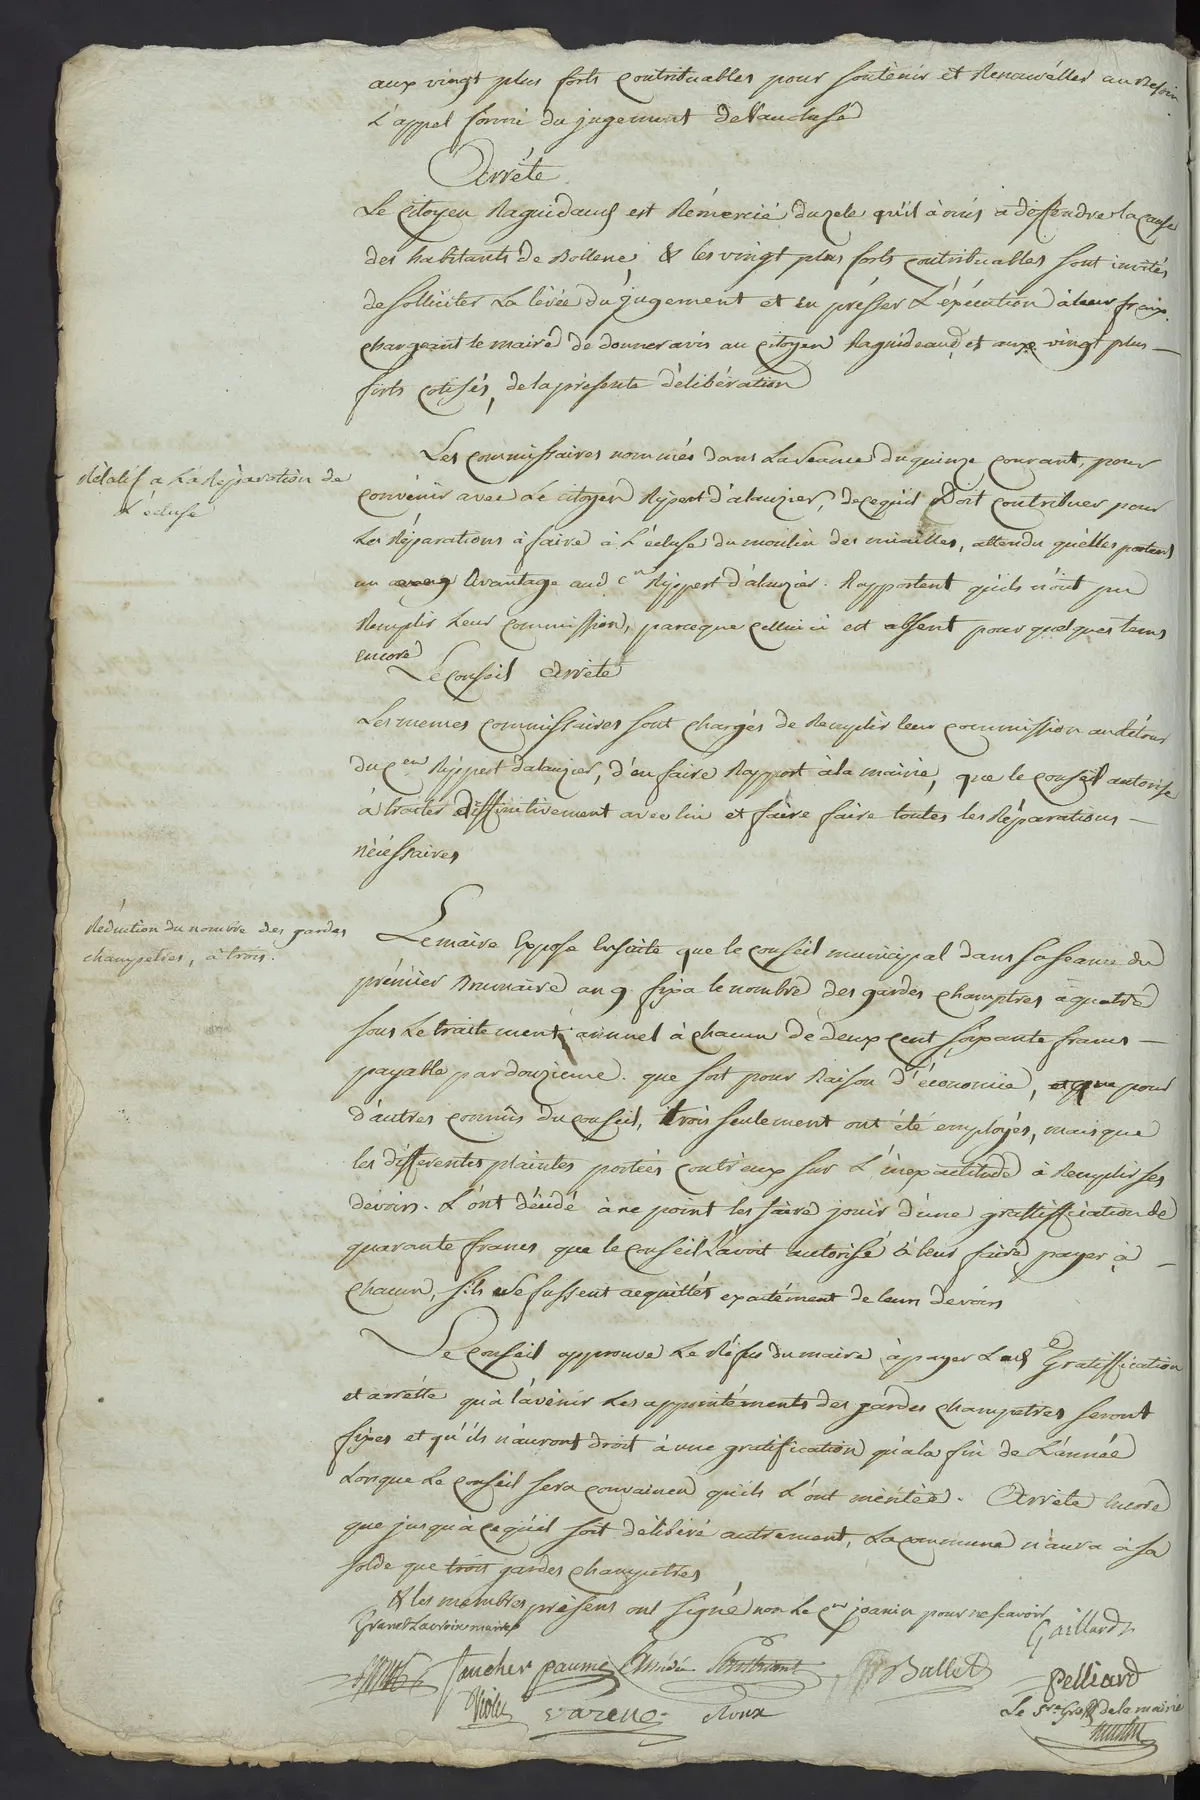 aux vingt plus forts contribuables pour soutenir et Renouveller au Besoin
L'appel formé du jugement de Vaucluse
Arrête
Le Citoyen Raguideaud est Rémercié du zele qu'il à mis à deffendre la cause
des habitants de Bollene, & les vingt plus forts contribuables sont invités
de solliciter La lévée du jugement et en présser L'éxécution à leur fraix.
chargeant le maire de donner avis au citoyen Raguideaud, et aux vingt plus —
forts cotisés, de la présente délibération
Rélatif a La Réparation de
L'écluse
Les commissaires nommés dans La séance du quinze courant, pour
convenir avec Le citoyen Rippert d'alauzier, de ce qu'il Doit contribuer pour
Les Réparations à faire à L'écluse du moulin des miailles, attendu qu'elles portent
un avantage aud. c.en Rippert d'alauzier. Rapportent qu'ils n'ont pu
Remplir Leur commission, parceque cellui ci est absent pour quelques tems
encore
Le Conseil Arrête
Les memes commissaires sont chargés de Remplir leur commission au Rétour
du C.en Rippert dalauzier, d'en faire Rapport à la mairie, que le conseil autorise
à traiter déffinitivement avec lui et faire faire toutes les Réparations —
nécéssaires
Réduction du nombre des gardes
champetres, à trois.
Le maire Expose Ensuite que le conseil municipal dans sa séance du
prémier Brumaire an 9 fixa le nombre des gardes champtres à quatre
sous Le traitement annuel à chacun de deux cent soixante francs —
payable par douzieme. que soit pour Raison d'économie, pour
d'autres connûs du conseil, trois seulement ont été employés, mais que
les differentes plaintes portées contr'eux sur L'inexactitude à Remplir ses
devoirs. L'ont décidé à ne point les faire jouir d'une grattiffication de
quarante francs que le conseil L'avoit autorisé à leur faire payer à —
chacun, s'ils se fussent acquittés exactément de leurs devoirs
Le Conseil approuve Le Réfus du maire à payer Lad.e Gratiffication
et arrétte qu'à l'avénir Les appointéments des gardes champetres seront
fixes et qu'ils n'auront droit à une gratification qu'a la fin de L'année
Lorsque Le conseil sera convaincu qu'ils L'ont méritée. Arrête Encore
que jusqu'à ce qu'il soit délibéré autrement, La commune n'aura à sa
solde que trois gardes champetres
& les membres présens ont signé non Le C.en joanin pour ne scavoir
Granet Lacroix maire
Gaillard
faucher paume Bullet
Pelliard
Violes varenc Roux
Le S.re Gref de la mairie
martin